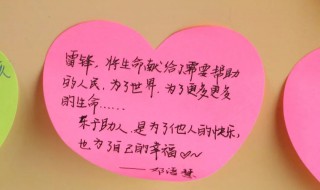 雷锋，将生命献给了需要帮助
的人民，为了世界，为了更多更多
的生命……
乐于助人，是为了他人的快乐，
也为了自己的幸福♡~